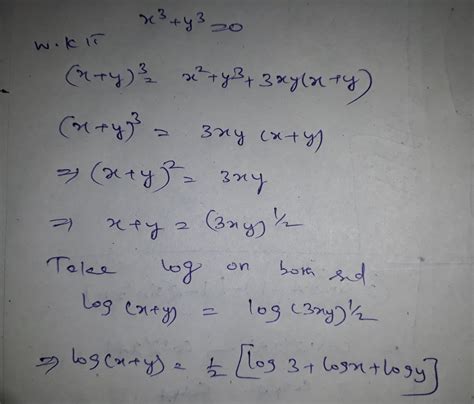 x³+y³=0
W.K.T
(x+y)³= x²+y³+3xy(x+y)
(x+y)³ = 3xy (x+y)
⇒ (x+y)² = 3xy
⇒ x+y = (3xy)½
Take log on both sid.
log (x+y) = log (3xy)½
⇒ log(x+y) = ½ [log 3+logx+logy]